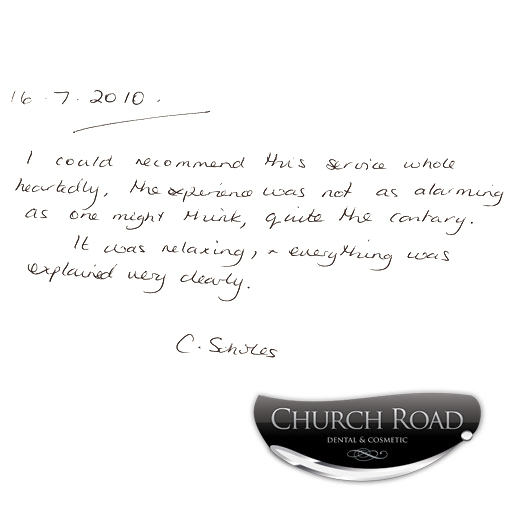 16.7.2010.
I could recommend this service whole
heartedly, the experience was not as alarming
as one might think, quite the contary.
It was relaxing, & everything was
explained very clearly.
C. Scholes
CHURCH ROAD
DENTAL & COSMETIC